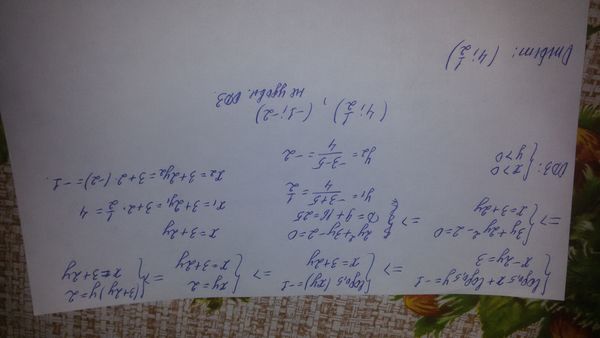 { log₀,₅x + log₀,₅y = -1   x - 2y = 3 => { log₀,₅(xy) = -1   x = 3 + 2y => { xy = 2   x = 3 + 2y => { (3+2y)y = 2   x = 3 + 2y
=> { 3y + 2y² - 2 = 0   x = 3 + 2y => { 2y² + 3y - 2 = 0   x = 3 + 2y
D = 9 + 16 = 25
y₁ = (-3+5)/4 = 1/2   x₁ = 3 + 2y₁ = 3 + 2 · 1/2 = 4
ОДЗ: { x > 0   y > 0   y₂ = (-3-5)/4 = -2   x₂ = 3 + 2y₂ = 3 + 2 · (-2) = -1.
(4; 1/2), (-1; -2)
не удовл. ОДЗ
Ответ: (4; 1/2)